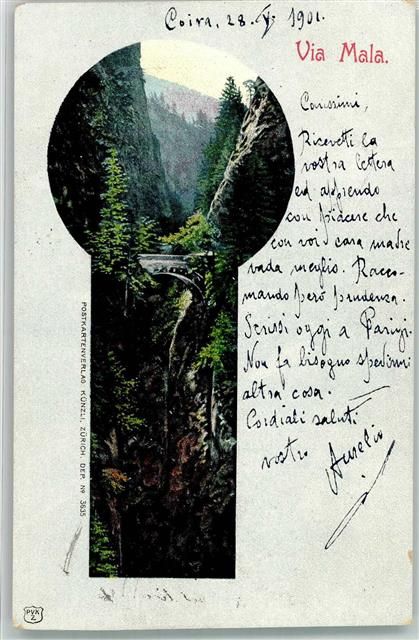 Coira, 28. V. 1901.
Via Mala.
Carissimi,
Ricevetti la
vostra lettera
ed apprendo
con piacere che
con voi cara madre
vada meglio. Racco-
mando però prudenza.
Scrissi oggi a Parigi.
Non fa bisogno spedirmi
altra cosa.
Cordiali saluti
vostro Aurelio
POSTKARTENVERLAG KÜNZLI, ZÜRICH. DEP. No 3635
PVK
Z